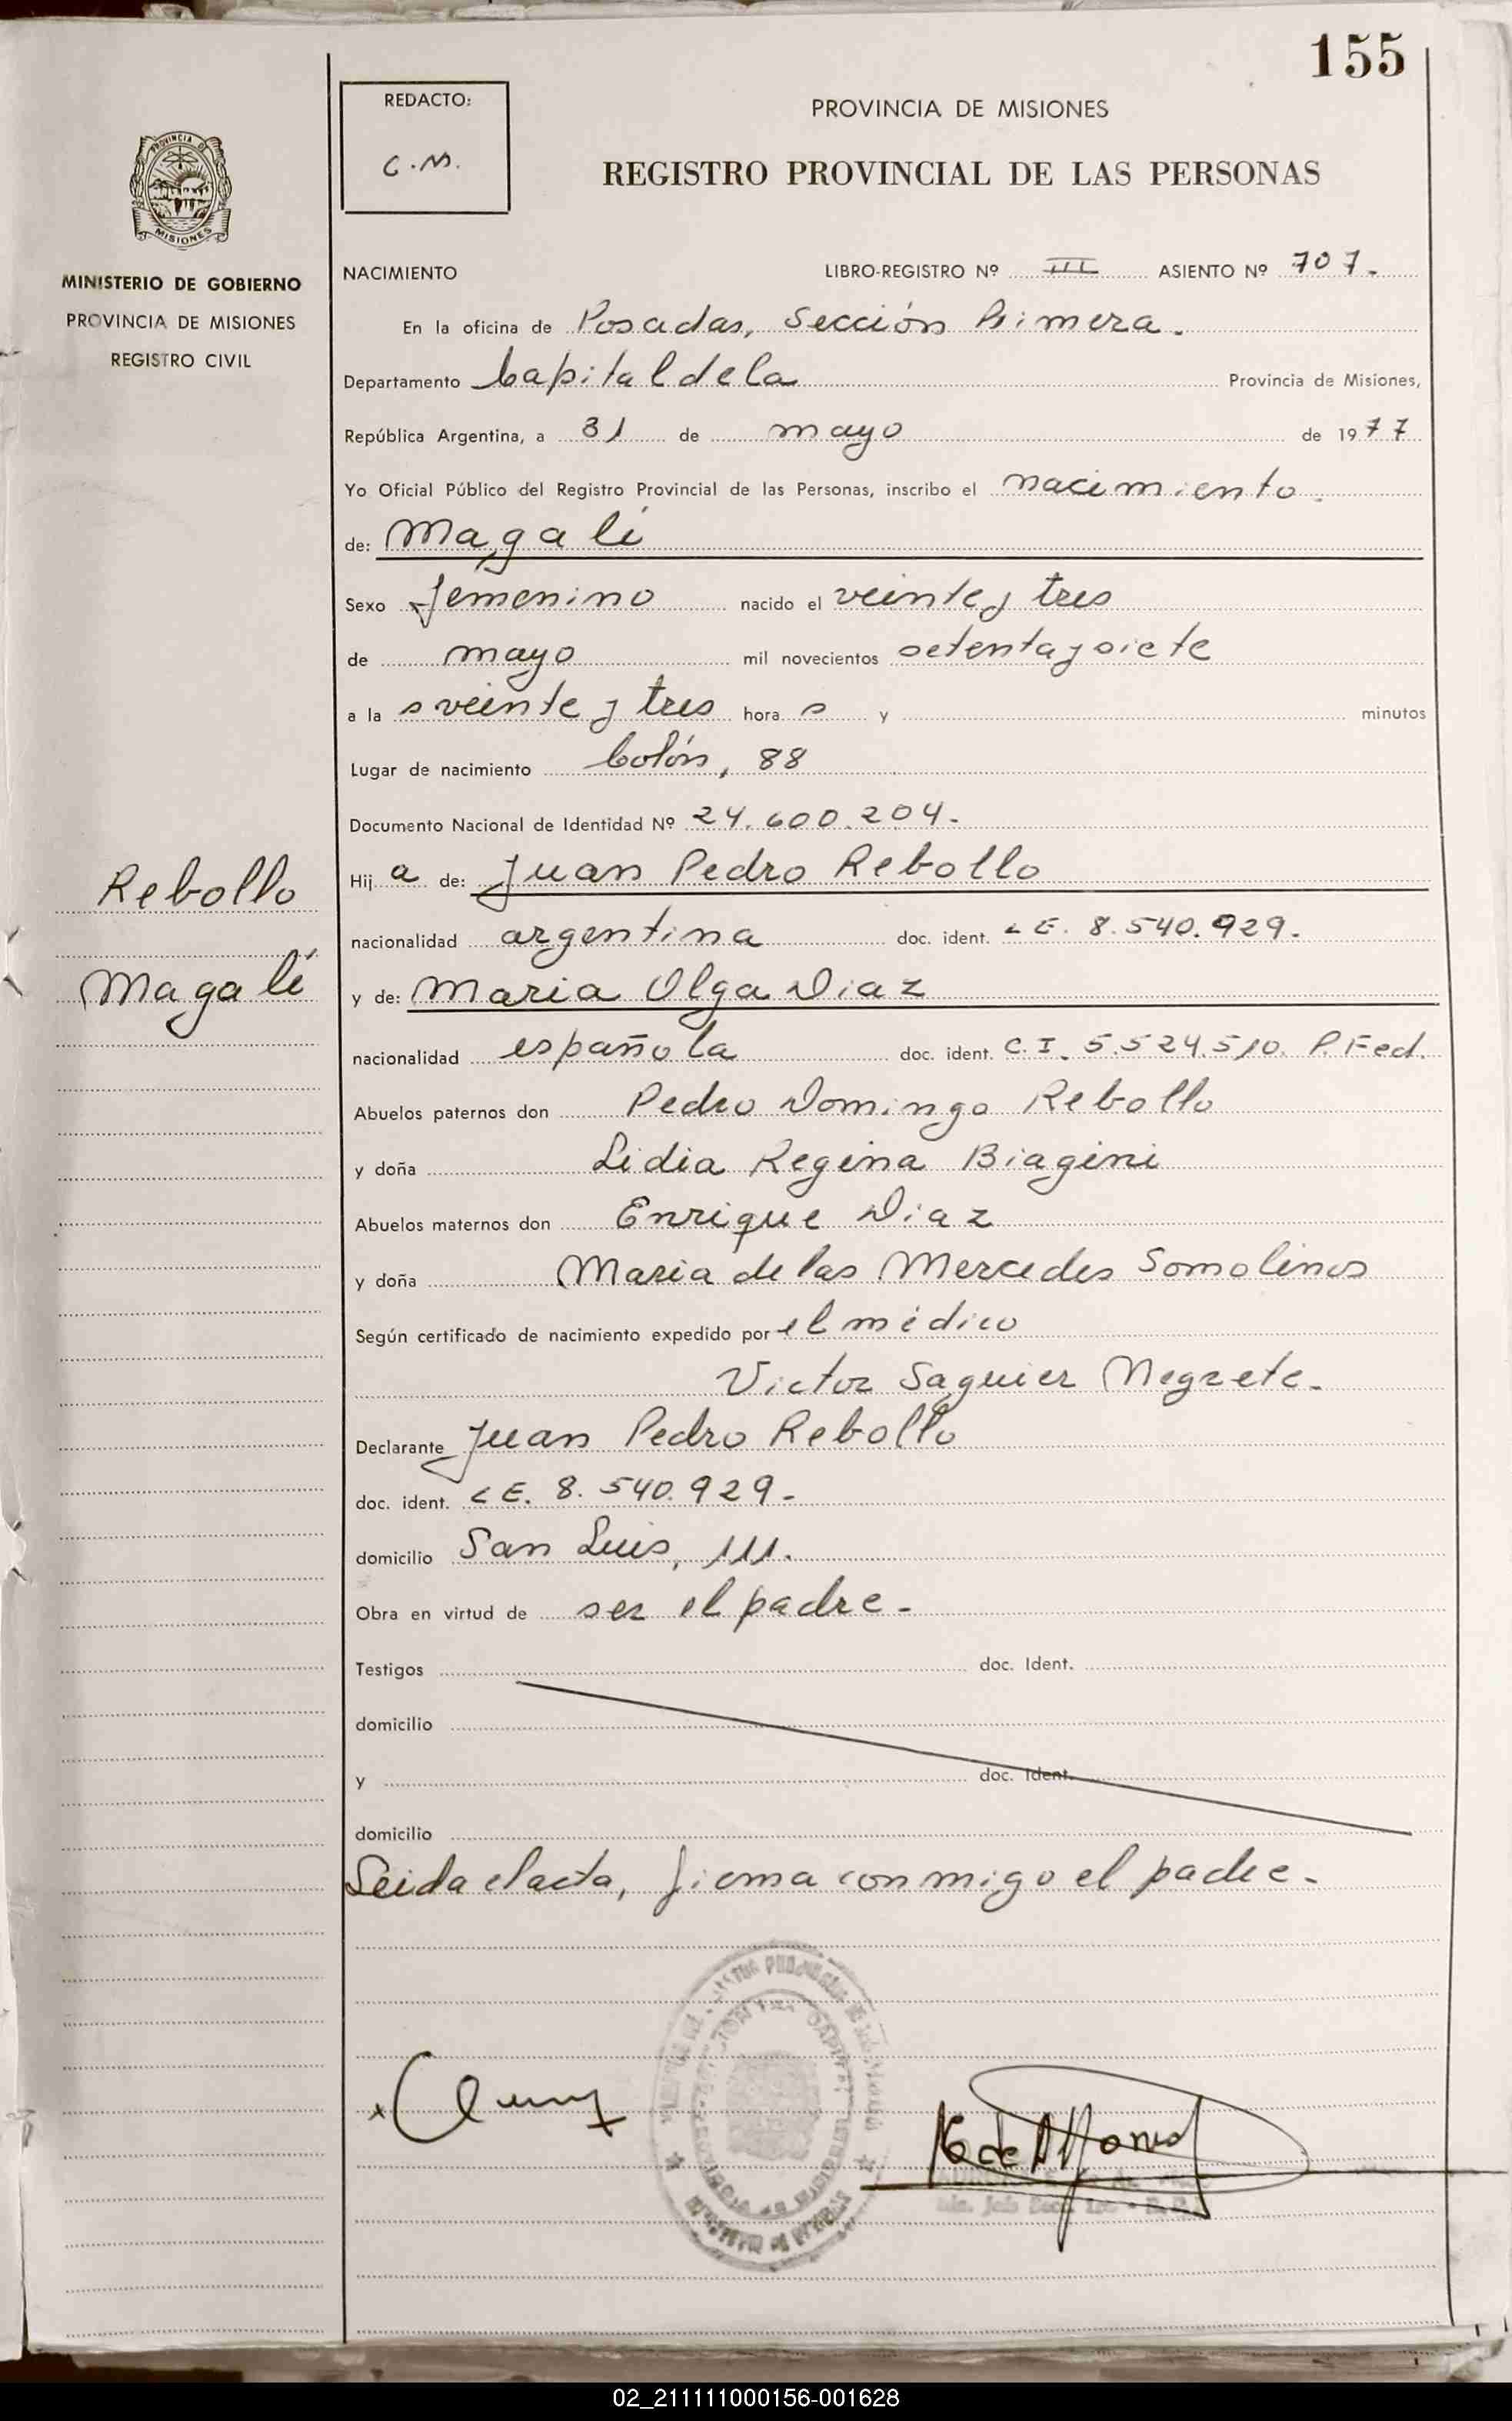 155
REDACTO:
C.M.
PROVINCIA DE MISIONES
REGISTRO PROVINCIAL DE LAS PERSONAS
PROVINCIA DE
MISIONES
MINISTERIO DE GOBIERNO
PROVINCIA DE MISIONES
REGISTRO CIVIL
NACIMIENTO LIBRO-REGISTRO Nº III ASIENTO Nº 707.
En la oficina de Posadas, Sección Primera.
Departamento Capital de la Provincia de Misiones,
República Argentina, a 31 de mayo de 1977
Yo Oficial Público del Registro Provincial de las Personas, inscribo el nacimiento.
de: Magalí
Sexo femenino nacido el veinte y tres
de mayo mil novecientos setenta y siete
a las veinte y tres horas y minutos
Lugar de nacimiento Colón, 88
Documento Nacional de Identidad Nº 24.600.204.
Rebollo
Hija de: Juan Pedro Rebollo
nacionalidad argentina doc. ident. L E. 8.540.929.
Magalí
y de: Maria Olga Diaz
nacionalidad española doc. ident. C.I. 5.524.510. P. Fed.
Abuelos paternos don Pedro Domingo Rebollo
y doña Lidia Regina Biagini
Abuelos maternos don Enrique Diaz
y doña Maria de las Mercedes Somolinos
Según certificado de nacimiento expedido por el médico
Victor Saguier Negrete.
Declarante Juan Pedro Rebollo
doc. ident. L E. 8.540.929-
domicilio San Luis, 111.
Obra en virtud de ser el padre-
Testigos doc. Ident.
domicilio
y doc. Ident.
domicilio
Leida el acta, firma conmigo el padre-
02_211111000156-001628